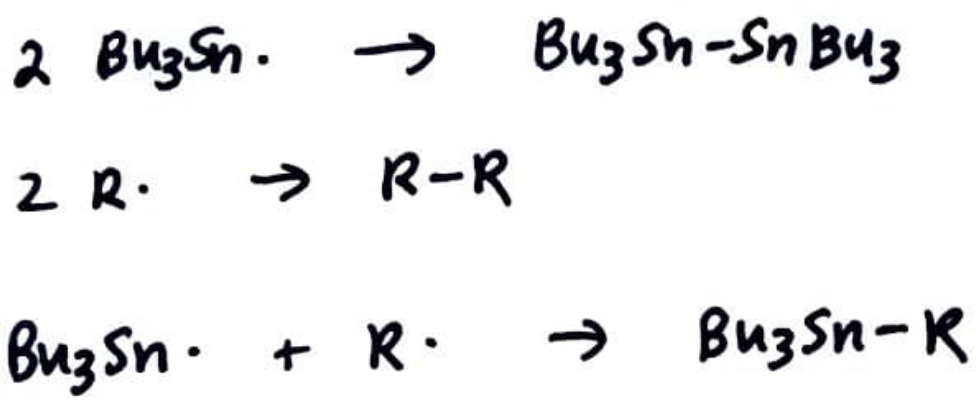 2 Bu₃Sn· → Bu₃Sn-SnBu₃
2 R· → R-R
Bu₃Sn· + R· → Bu₃Sn-R